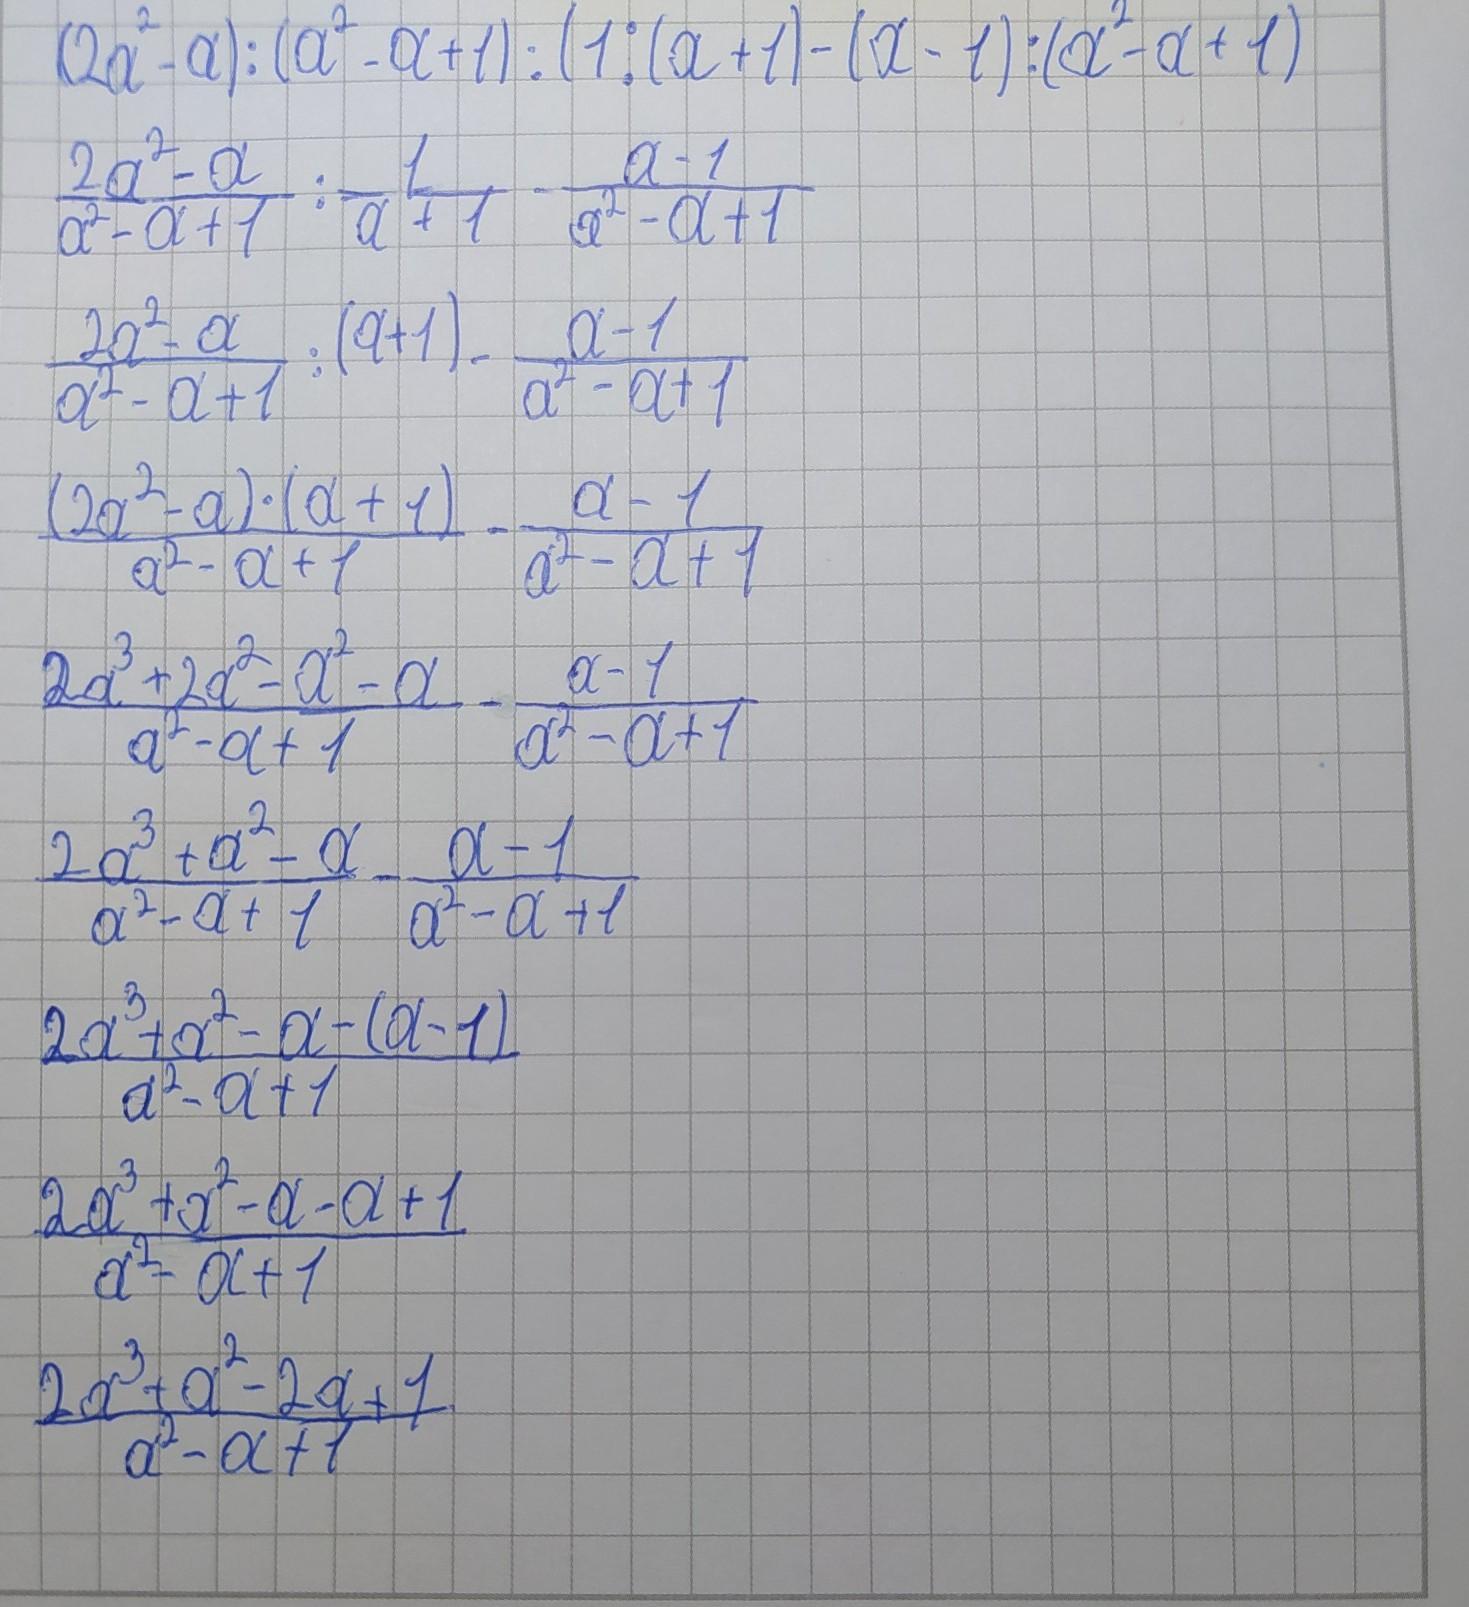 (2a²-a):(a²-a+1):(1:(a+1)-(a-1):(a²-a+1)
2a²-a / a²-a+1 : 1 / a+1 - a-1 / a²-a+1
2a²-a / a²-a+1 : (a+1) - a-1 / a²-a+1
(2a²-a)·(a+1) / a²-a+1 - a-1 / a²-a+1
2a³+2a²-a²-a / a²-a+1 - a-1 / a²-a+1
2a³+a²-a / a²-a+1 - a-1 / a²-a+1
2a³+a²-a-(a-1) / a²-a+1
2a³+a²-a-a+1 / a²-a+1
2a³+a²-2a+1 / a²-a+1